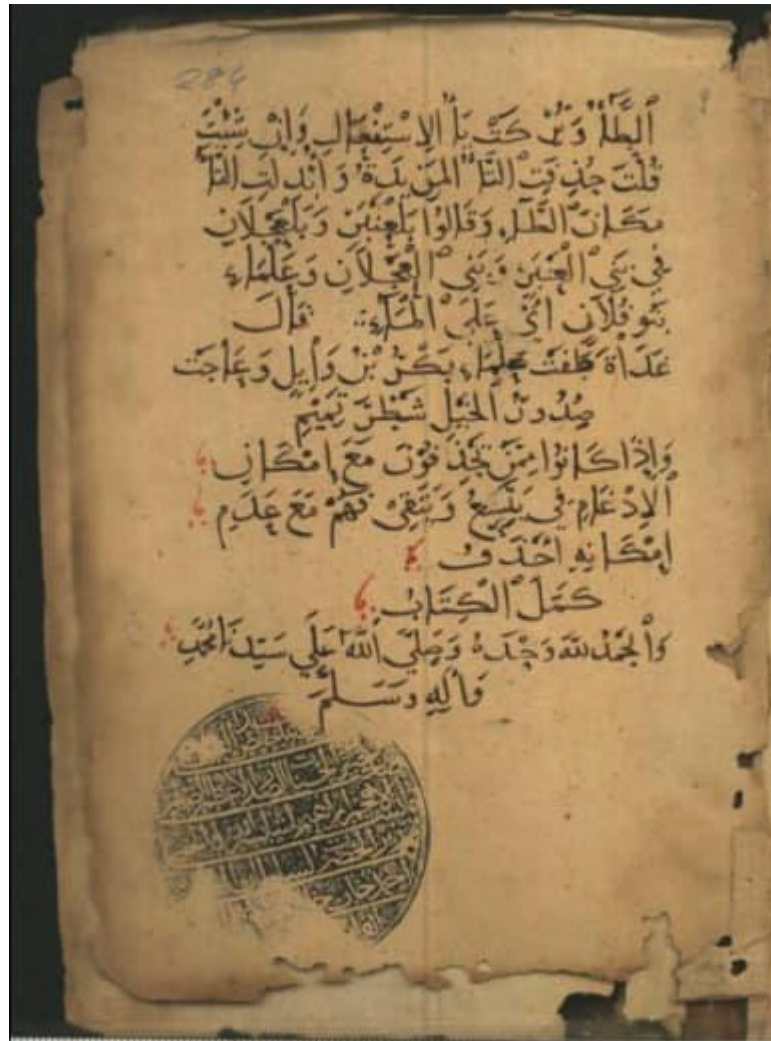 284
ٱلطَّاءُ وَتُرِكَتْ تَاءُ ٱلِاسْتِفْعَالِ وَإِنْ شِئْتَ
قُلْتَ حُذِفَتِ ٱلتَّاءُ ٱلْمَزِيدَةُ وَأُبْدِلَتِ ٱلتَّاءُ
مَكَانَ ٱلطَّاءِ وَقَالُوا بَلْعَنْبَرِ وَبَلْعَجْلَانِ
فِي بَنِي ٱلْعَنْبَرِ وَبَنِي ٱلْعَجْلَانِ وَعَلْمَاءِ
بَنُو فُلَانٍ أَيْ عَلَى ٱلْمَاءِ قَالَ
غَدَاةَ طَفَتْ عَلْمَاءِ بَكْرُ بْنُ وَايِلٍ وَعَاجَتْ
صُدُورُ ٱلْخَيْلِ شَطْرَ تَمِيمِ
وَإِذَا كَانُوا مِمَّنْ يَحْذِفُونَ مَعَ إِمْكَانِ
ٱلْإِدْغَامِ فِي يَتَّسِعُ وَيَتَّقِي فَهُمْ مَعَ عَدَمِ
إِمْكَانِهِ أَحْذَفُ
كَمَلَ ٱلْكِتَابُ
وَٱلْحَمْدُ لِلَّهِ وَحْدَهُ وَصَلَّى ٱللَّهُ عَلَى سَيِّدِنَا مُحَمَّدٍ
وَآلِهِ وَسَلَّمَ